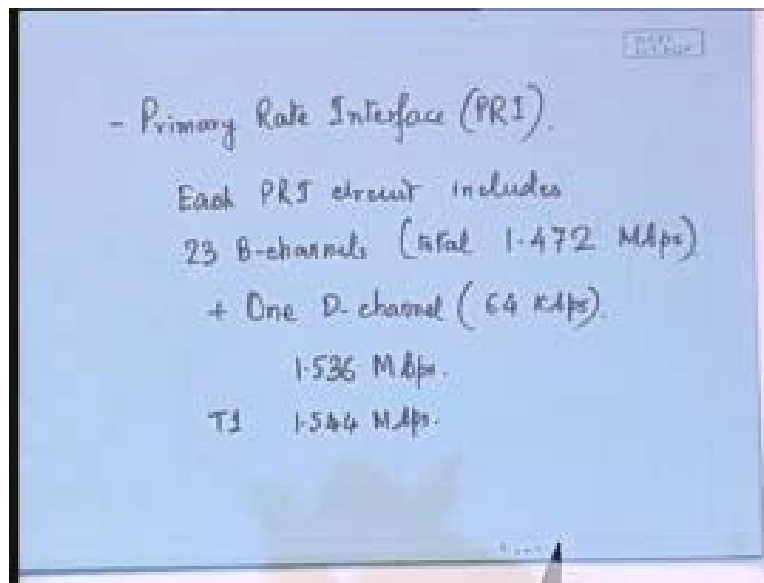 - Primary Rate Interface (PRI).
Each PRI circuit includes
23 B-channels (total 1.472 Mbps)
+ One D-channel (64 Kbps).
1.536 Mbps.
T1 1.544 Mbps.